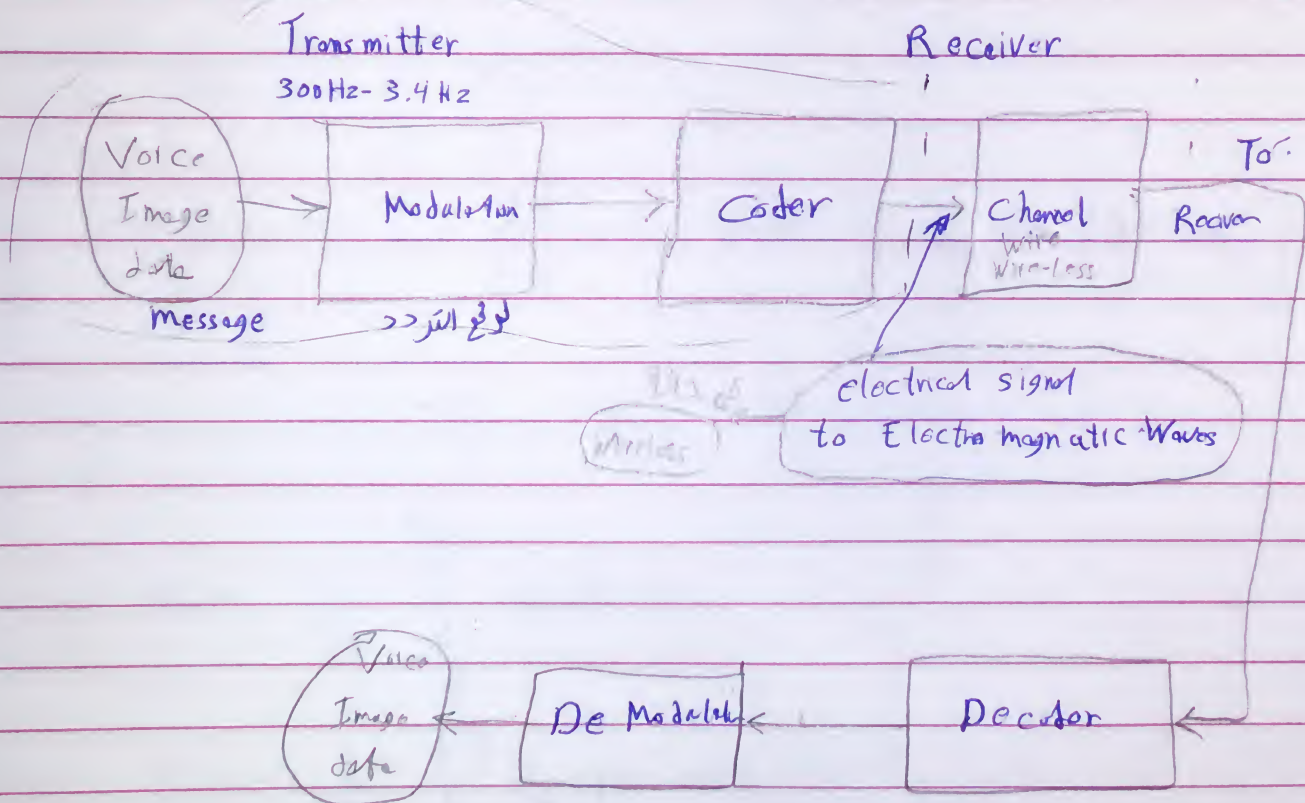 Transmitter
Receiver
300Hz- 3.4 Hz
Voice
Image
data
message
Modulation
لرفع التردد
Coder
Channel
wire
wire-less
To
electrical signal
to Electro magnatic Waves
Voice
Image
data
De Modulat
Decoder